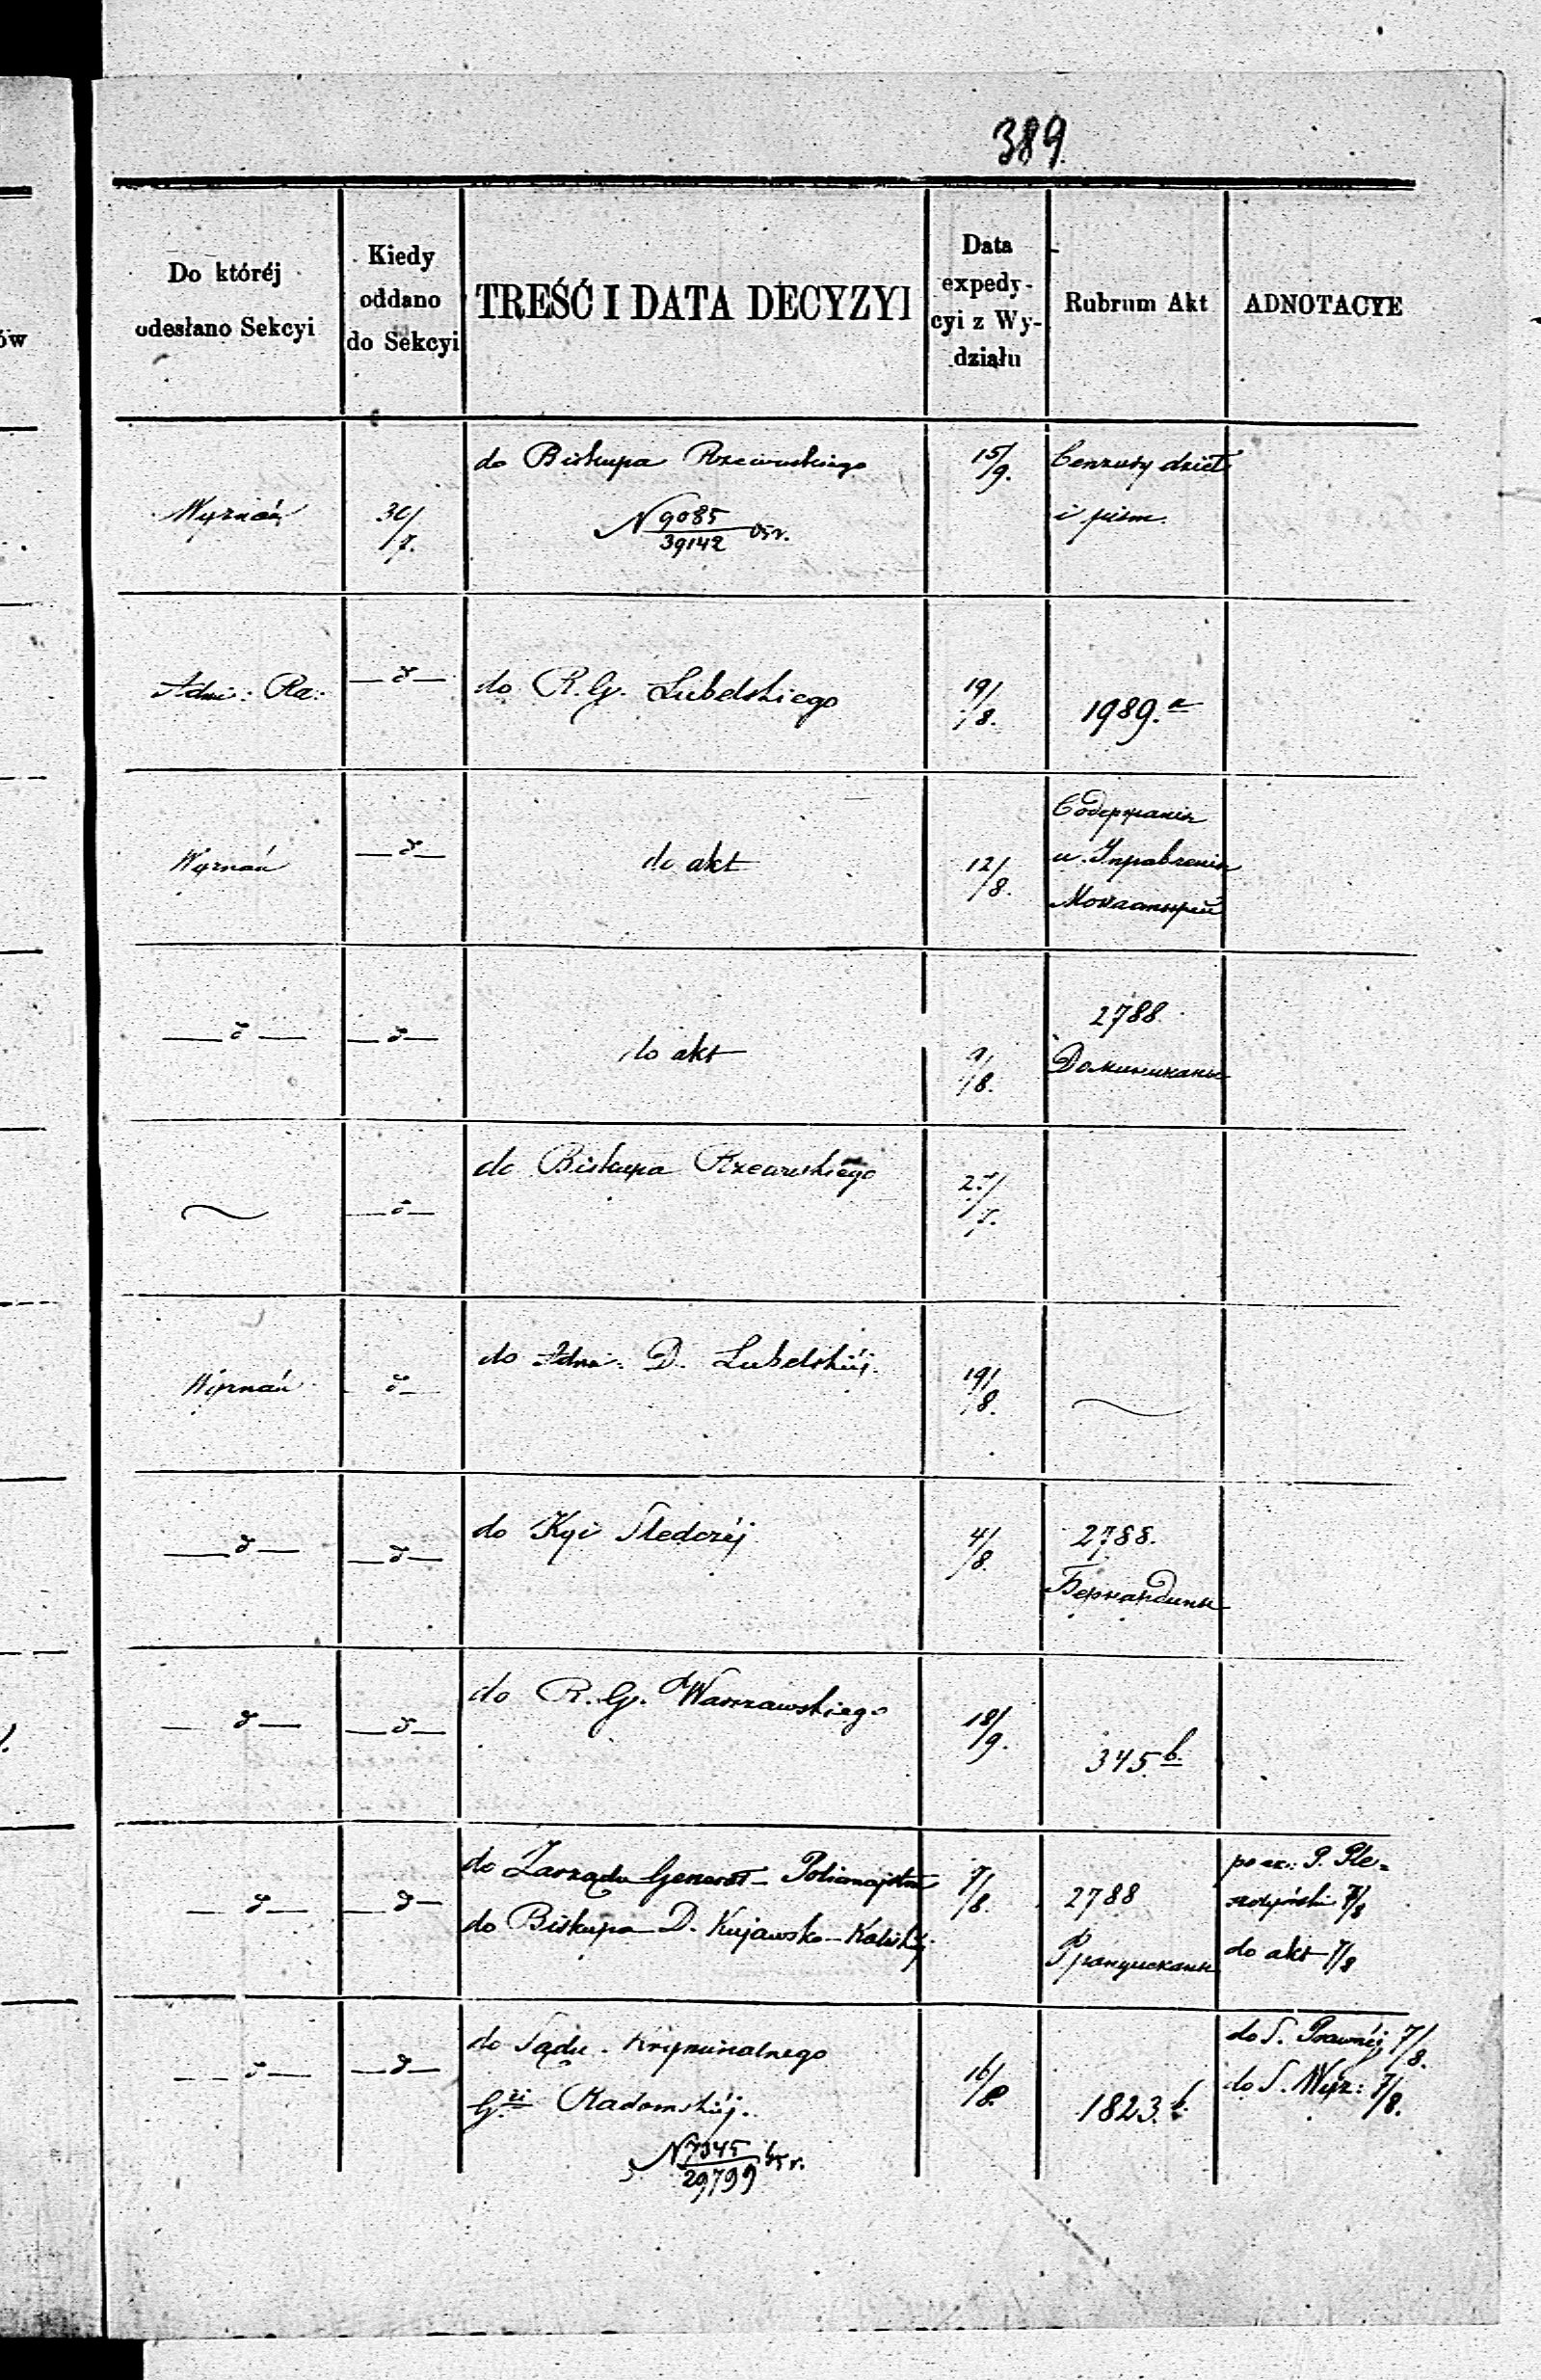 389
Do któréj
odesłano Sekcyi
Kiedy
oddano
do Sekcyi
TREŚĆ I DATA DECYZYI
Data
expedy-
cyi z Wy-
działu
Rubrum Akt
ADNOTACYE
ów
Wyznań
30/7.
do Biskupa Rzewuskiego
N 9085/39142 65 r.
15/9.
Cenzury dzieł
i pism.
Adm: Ra:
— d —
do R. G. Lubelskiego
19/8.
1989.a
Wyznań
— d —
do akt
12/8.
Содержанія
и Управленія
Монастырей
— d —
— d —
do akt
9/8.
2788.
Доминиканы
— d —
do Biskupa Rzewuskiego
Wyznań
d —
do Adm: D. Lubelskiéj.
19/8.
— d —
— d —
do Kyi Śledczéj
4/8.
2788.
Бернардины
— d —
— d —
do R. G. Warszawskiego
18/9.
345 b.
— d —
— d —
do Zarządu Generał-Policmajstra
do Biskupa D. Kujawsko-Kaliskiéj
7/8.
2788
Францискане
do akt 7/8
— d —
— d —
do Sądu Kryminalnego
G.ii Radomskiéj.
N 7345/29799 65 r.
16/8.
1823.
do S. Prawnéj 7/8.
do S. Wyz: 7/8.